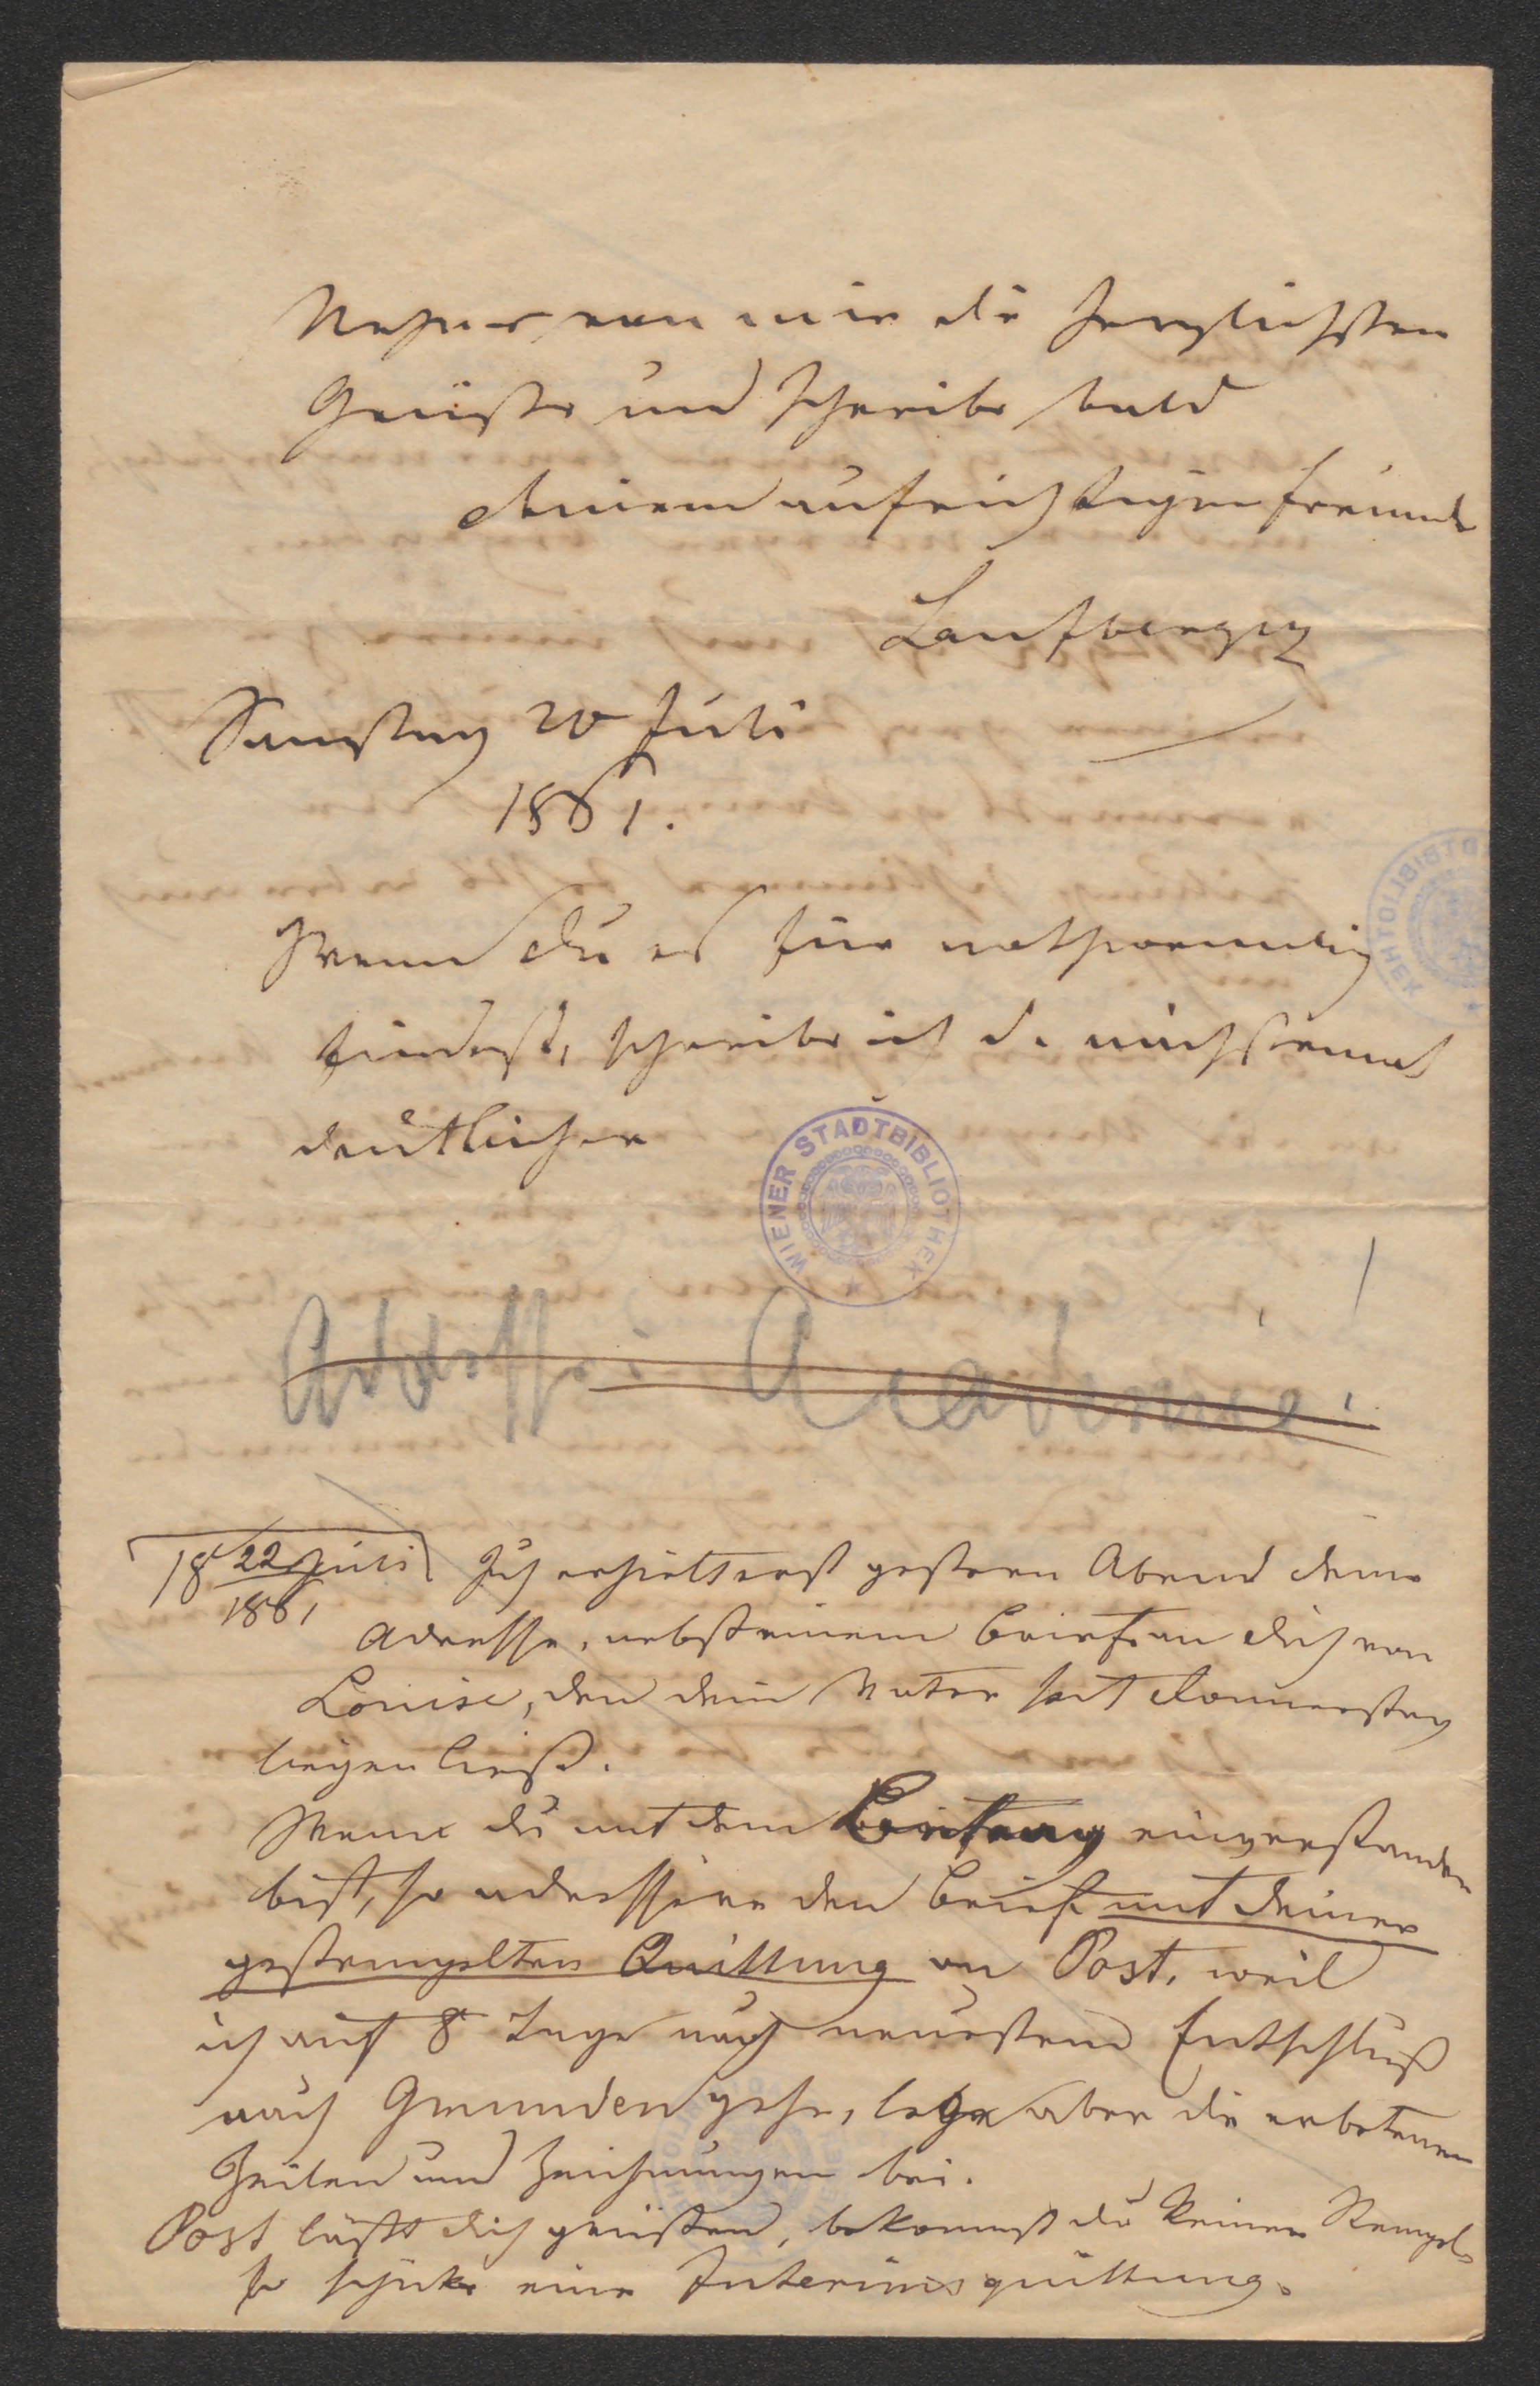 Nehme von mir die herzlichsten
Grüße und schreibe bald
deinem aufrichtigen Freunde
Laufberger
Samstag 20 Juli
1861.
Wenn du es für nothwendig
findest, schreibe ich d. nächstemal
deutlicher
WIENER STADTBIBLIOTHEK
18 22 Juli
1861
Ich erhielt erst gestern Abend deine
Adresse, nebst einem Brief an dich von
Louise, den dein Vater seit Donnerstag
liegen ließ.
Wenn du mit dem Beitrag einverstanden
bist, so adressire den Brief mit deiner
gestempelten Quittung an Post, weil
ich auf 8 Tage nach neuestem Entschluß
nach Gmunden gehe, lege aber die erbetenen
Zeilen und Zeichnungen bei.
Post läßt dich grüßen, bekommst du keinen Stempel,
so schicke eine Interimsquittung.